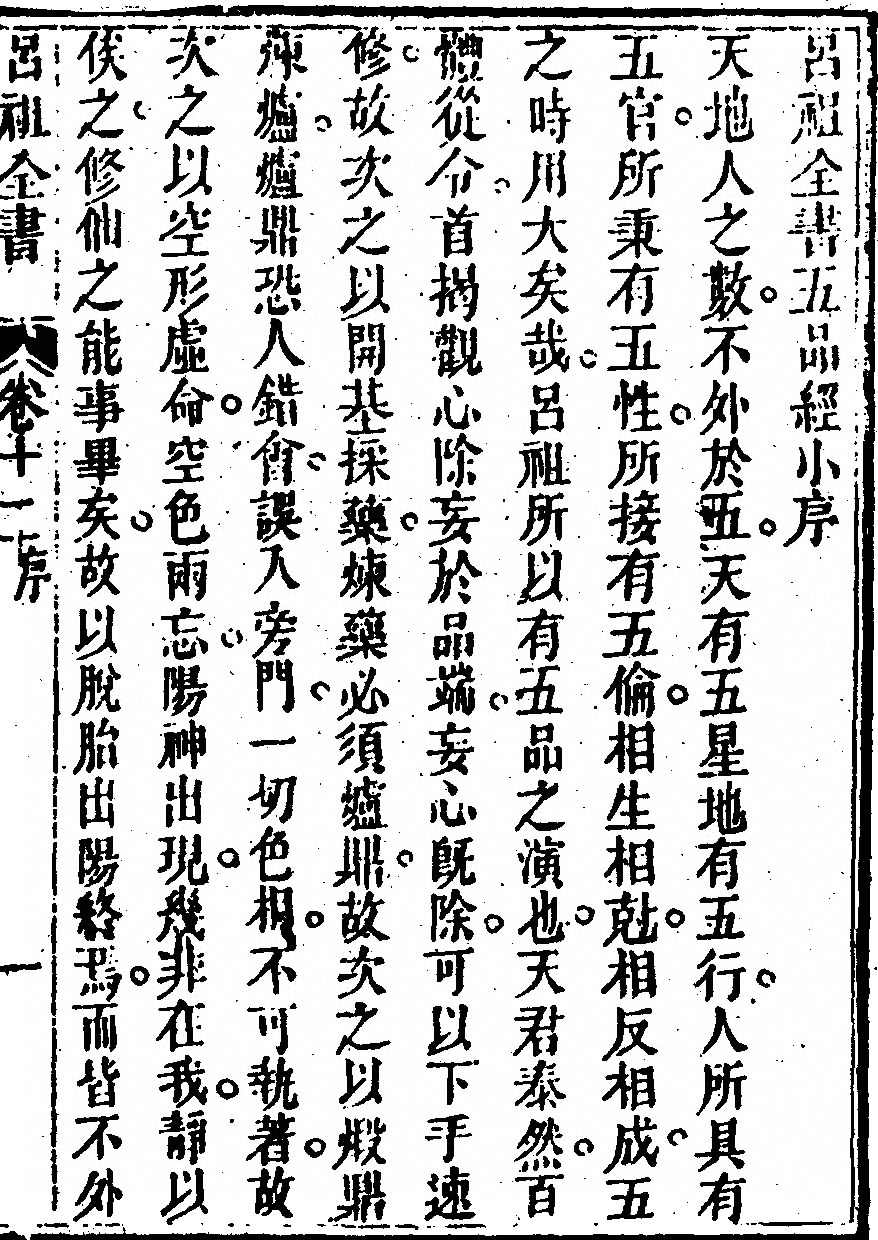 呂祖全書五品經小序
天地人之數不外於五天有五星地有五行人所具有
五官所秉有五性所接有五倫相生相尅相反相成五
之時用大矣哉呂祖所以有五品之演也天君泰然百
體從令首揭觀心除妄於品端妄心旣除可以下手速
修故次之以開基採藥煉藥必須爐鼎故次之以煅鼎
煉爐爐鼎恐人錯會誤入旁門一切色相不可執著故
次之以空形虛命空色兩忘陽神出現幾非在我靜以
俟之修仙之能事畢矣故以脫胎出陽終焉而皆不外
呂祖全書 卷十一 序 一